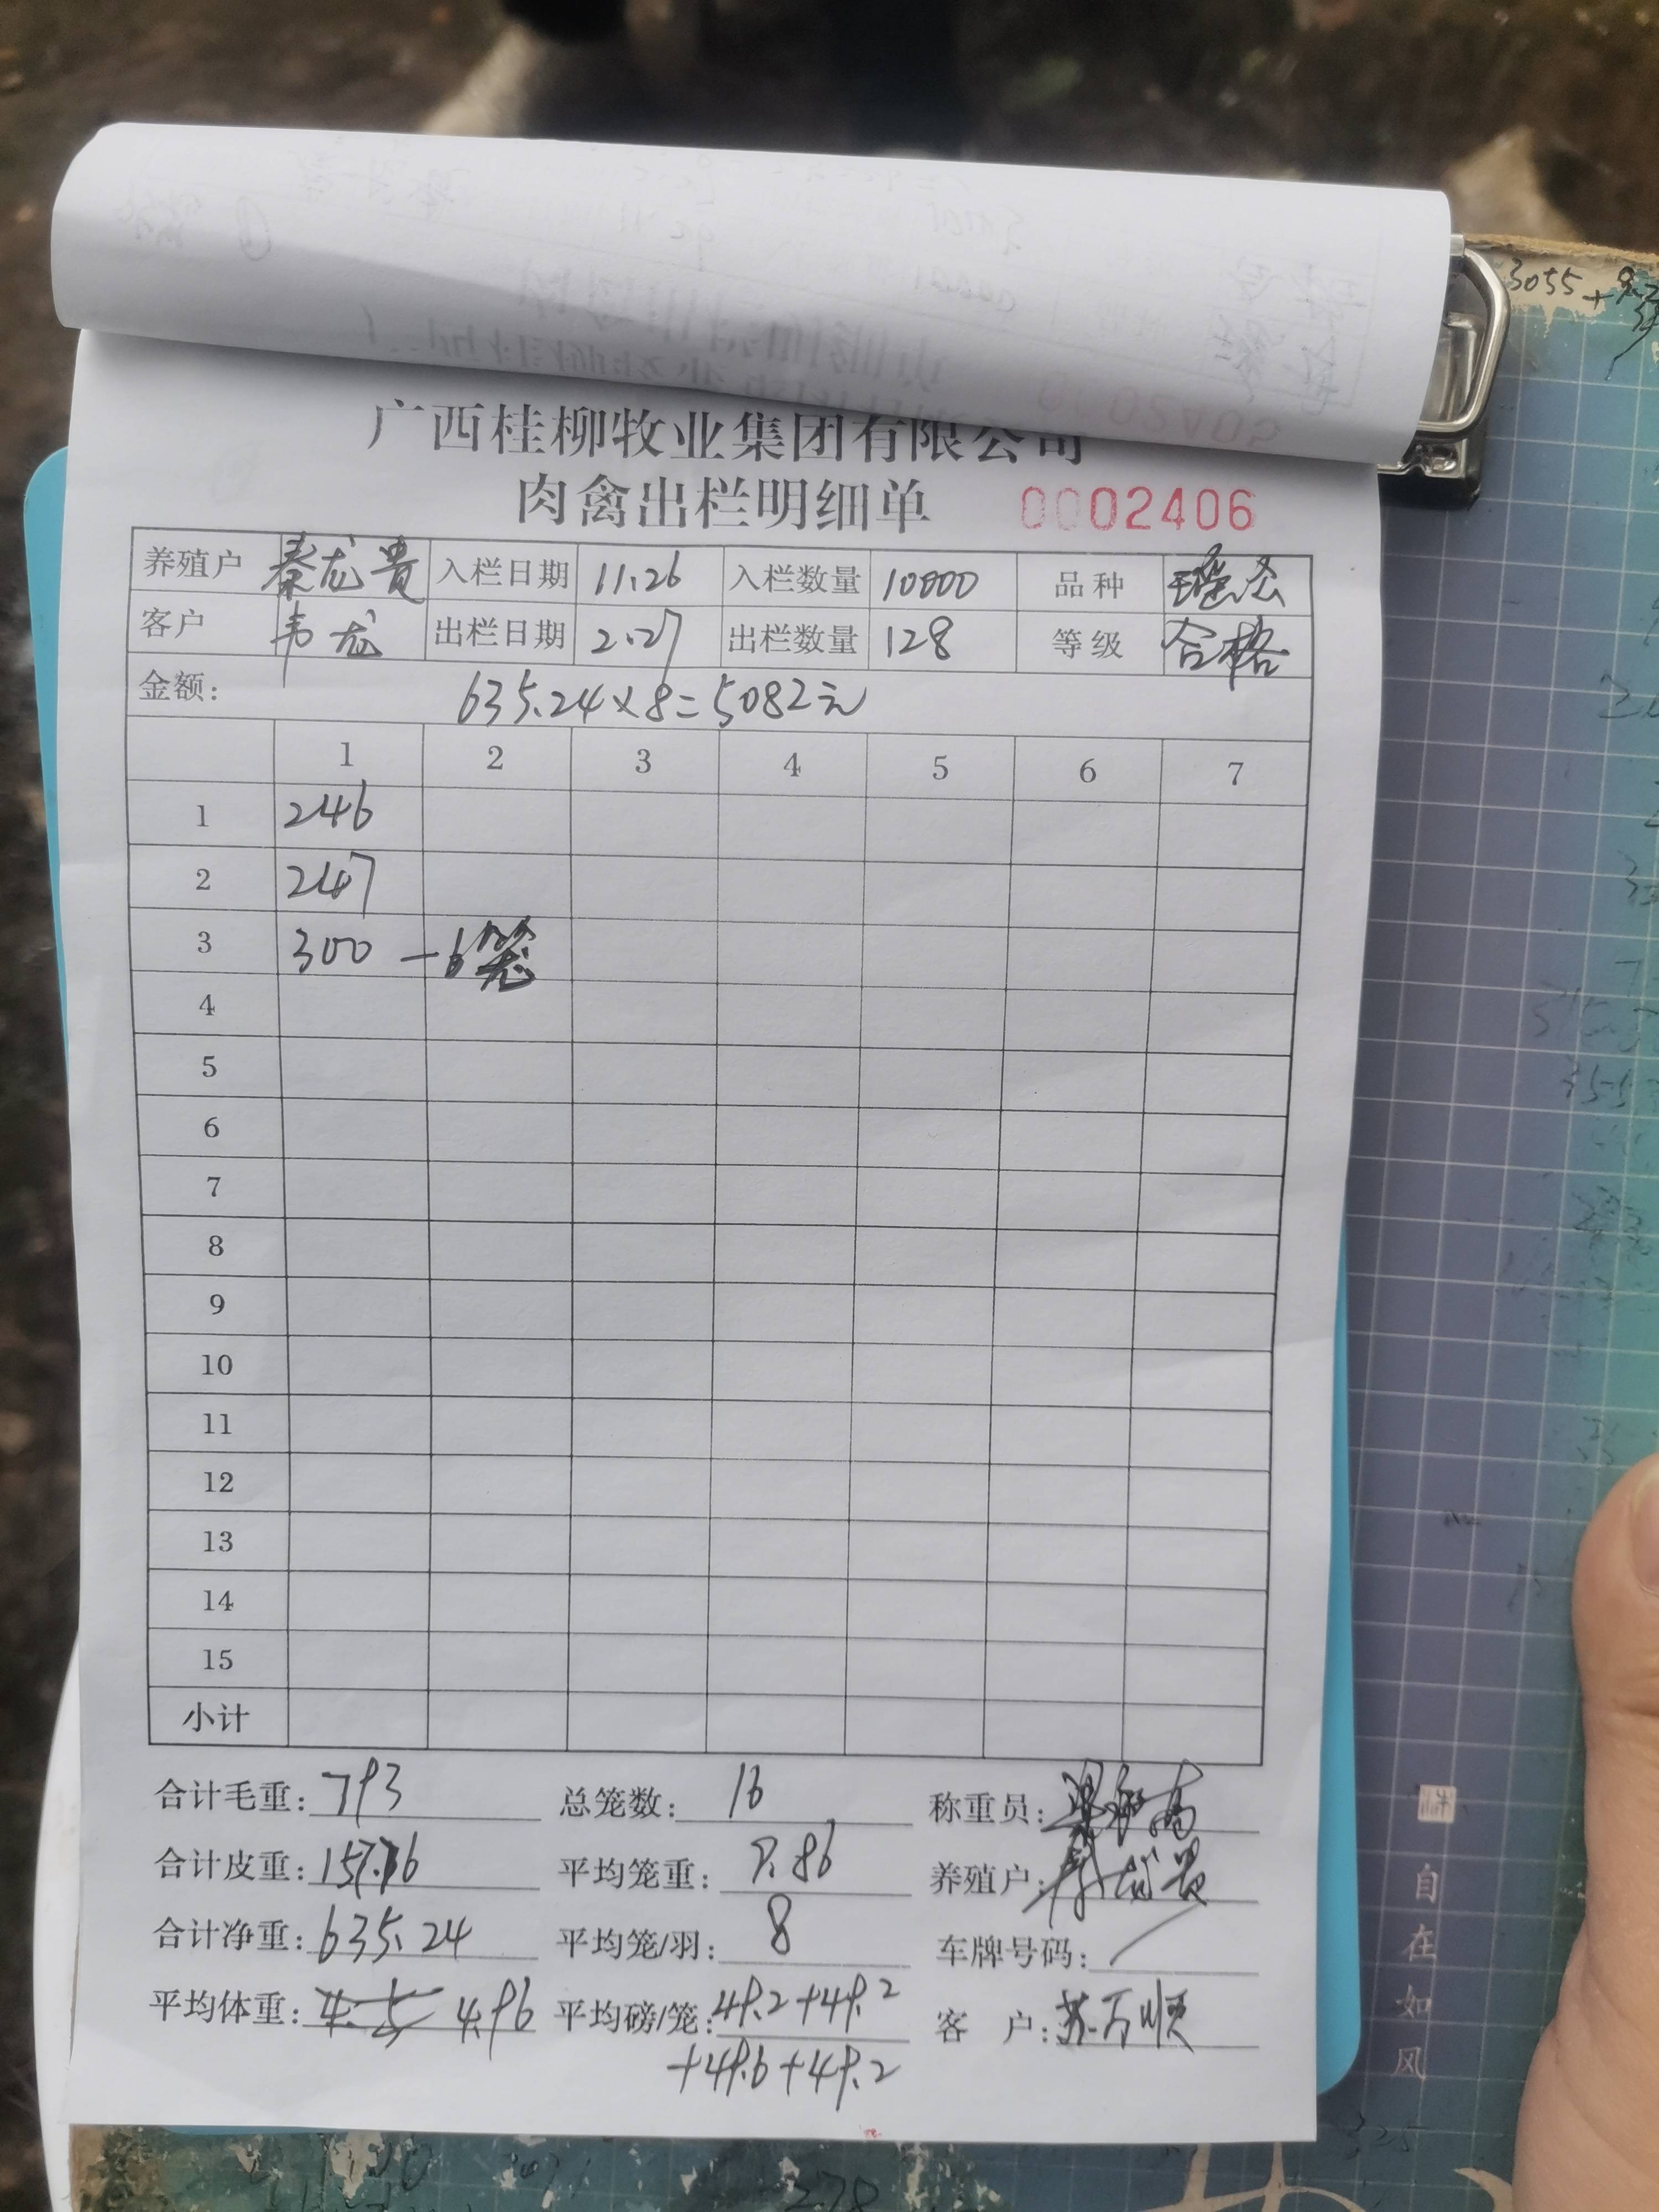 广西桂柳牧业集团有限公司
肉禽出栏明细单 0002406
养殖户 秦龙贵 入栏日期 11.26 入栏数量 10000 品种 瑶
客户 韦龙 出栏日期 2.27 出栏数量 128 等级 合格
金额: 635.24×8=5082元
1 2 3 4 5 6 7
1 246
2 247
3 300 — 6笼
4
5
6
7
8
9
10
11
12
13
14
15
小计
合计毛重: 793 总笼数: 16 称重员:
合计皮重: 157.76 平均笼重: 9.86 养殖户: 秦龙贵
合计净重: 635.24 平均笼/羽: 8 车牌号码: /
平均体重: 4.5 4.96 平均磅/笼: 49.2+49.2 客 户: 苏万顺
+49.6+49.2
3055+
自在如风
325
278